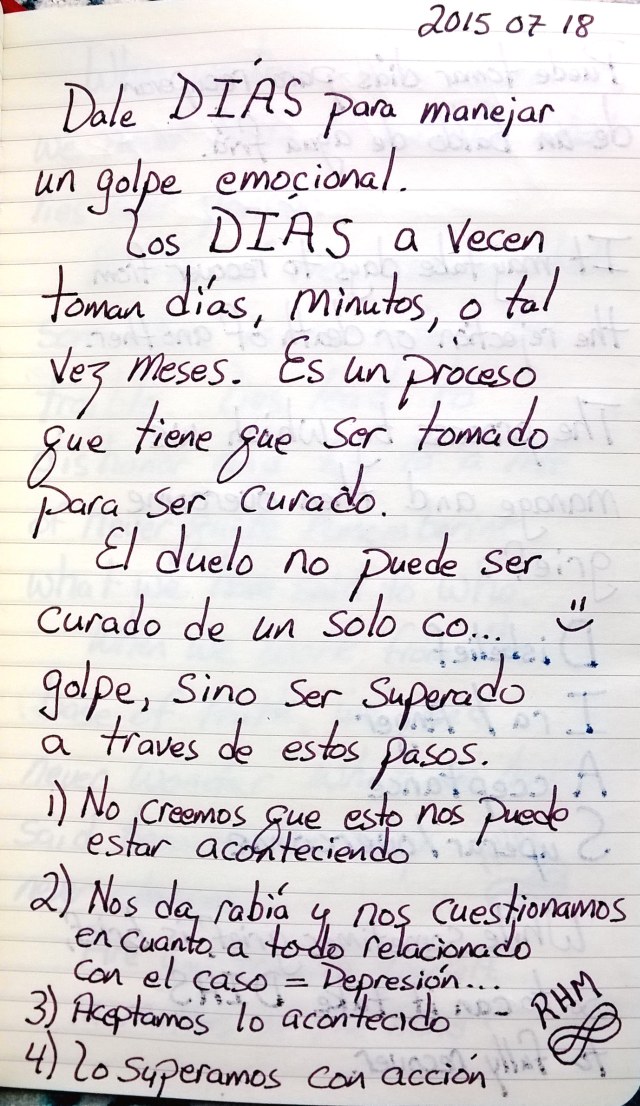 2015 07 18
Dale DÍAS para manejar
un golpe emocional.
Los DÍAS a vecen
toman días, minutos, o tal
vez meses. Es un proceso
que tiene que ser tomado
para ser curado.
El duelo no puede ser
curado de un solo co...
golpe, sino ser superado
a traves de estos pasos.
1) No creemos que esto nos puede
estar aconteciendo.
2) Nos da rabiá y nos cuestionamos
en cuanto a todo relacionado
con el caso = Depresión...
3) Aceptamos lo acontecido -
RHM
4) Lo superamos con acción